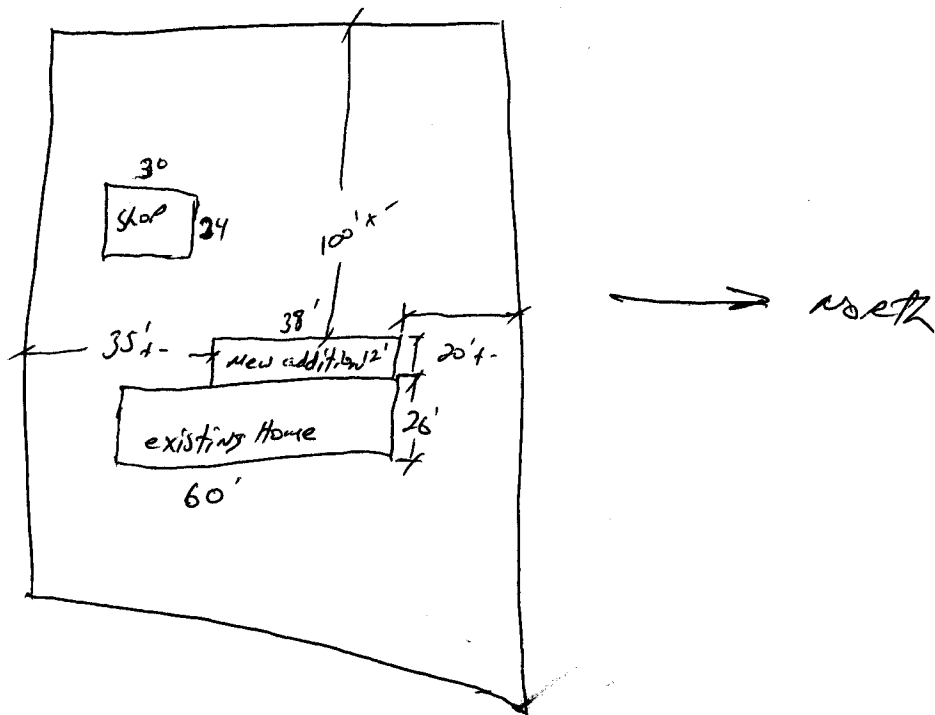 30
Shop
24
100' +-
38'
35' +-
New addition 12'
20' +-
existing Home
26'
60'
North